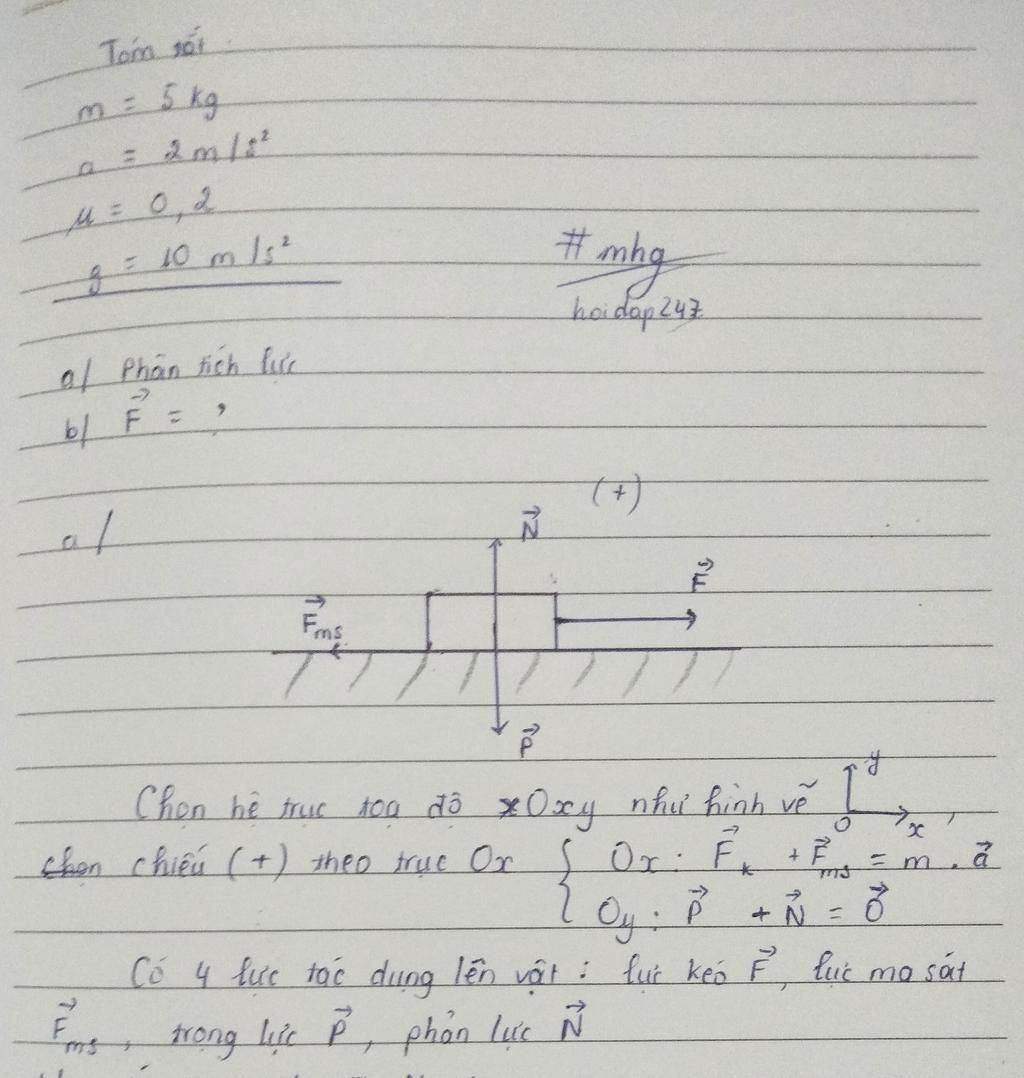 Tóm tắt
m = 5 kg
a = 2 m/s²
μ = 0,2
g = 10 m/s²
#mhg
hoidap247
a/ Phân tích lực
b/ F⃗ = ?
a/
(+)
N⃗
F⃗
F⃗ms
P⃗
Chọn hệ trục toạ độ xOxy như hình vẽ y O x ,
chọn chiếu (+) theo trục Ox { Ox: F⃗k + F⃗ms = m . a⃗
Oy: P⃗ + N⃗ = 0⃗
Có 4 lực tác dụng lên vật: lực kéo F⃗, lực ma sát
F⃗ms, trọng lực P⃗, phản lực N⃗